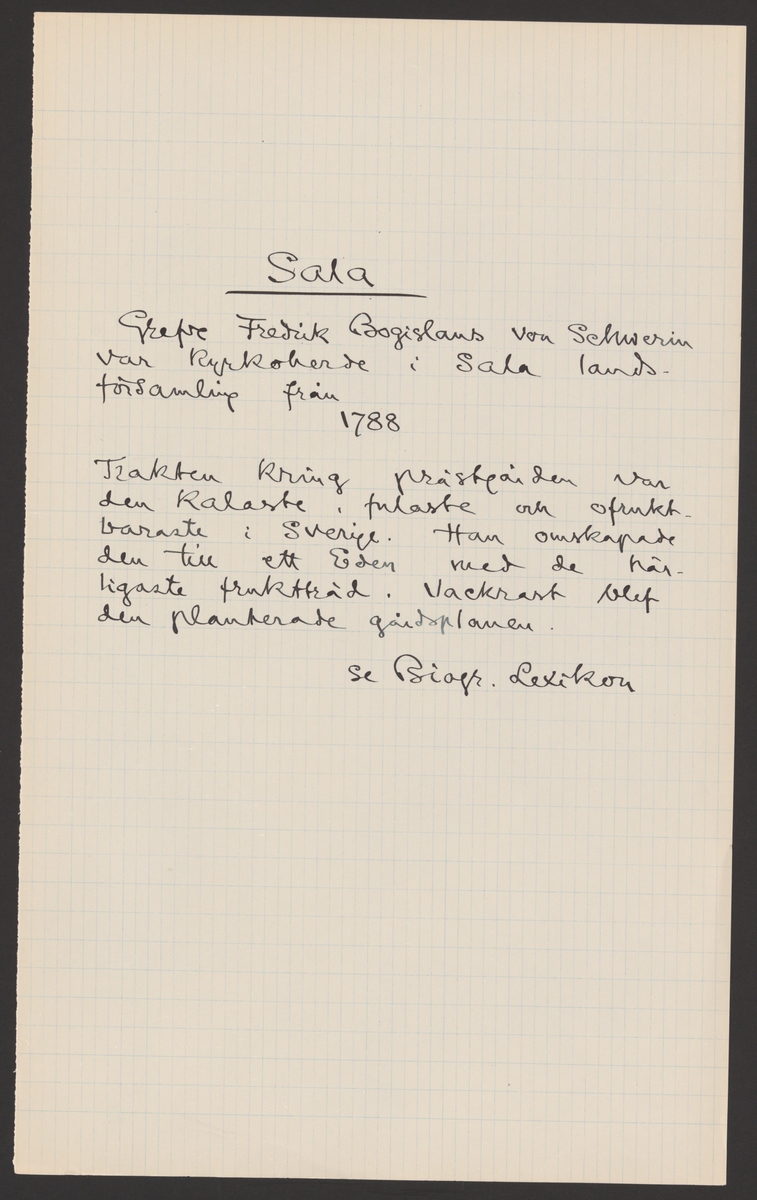 Sala
Grefve Fredrik Bogislaus von Schwerin
var kyrkoherde i Sala lands-
församling från
1788
Trakten kring prästgården var
den kalaste, fulaste och ofrukt-
baraste i Sverige. Han omskapade
den till ett Eden med de här-
ligaste fruktträd. Vackrast blef
den planterade gårdsplanen.
se Biogr. Lexikon